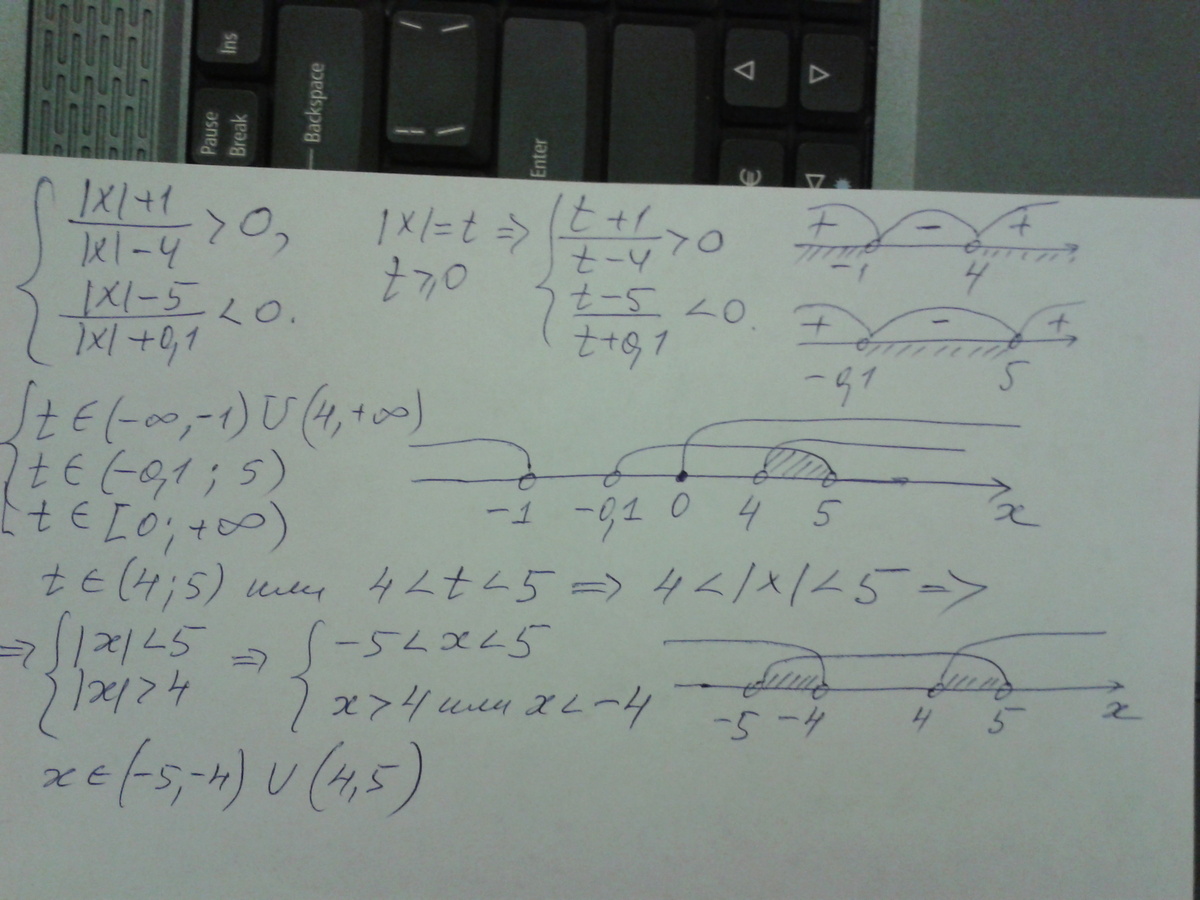 Ins
Pause
Break
Backspace
Enter
€
{ |x|+1 / |x|-4 > 0, |x|=t ⇒ { t+1 / t-4 > 0 + - + -1 4
t ≥ 0
|x|-5 / |x|+0,1 < 0. t-5 / t+0,1 < 0. + - + -0,1 5
{ t ∈ (-∞,-1) ∪ (4,+∞)
t ∈ (-0,1 ; 5)
t ∈ [0; +∞)
-1 -0,1 0 4 5 x
t ∈ (4;5) или 4 < t < 5 ⇒ 4 < |x| < 5 ⇒
⇒ { |x| < 5 ⇒ { -5 < x < 5
|x| > 4 x > 4 или x < -4
-5 -4 4 5 x
x ∈ (-5,-4) ∪ (4,5)